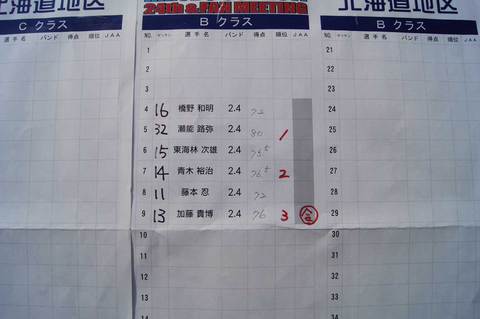 北海道地区
24th & FAX MEETING
北海道地区
C クラス
B クラス
B クラス
選手名 バンド 得点 順位 JAA
NO. ゼッケン 選手名 バンド 得点 順位 JAA
NO. ゼッケン 選手名 バンド 得点 順位 JAA
1 21
2 22
3 23
4 16 橋野 和明 2.4 72 24
5 32 瀬能 路弥 2.4 80 1 25
6 15 東海林 次雄 2.4 75.5 26
7 14 青木 裕治 2.4 76.5 2 27
8 11 藤本 忍 2.4 72 28
9 13 加藤 貴博 2.4 76 3 29
10 30
11 31
12 32
13 33
14 34